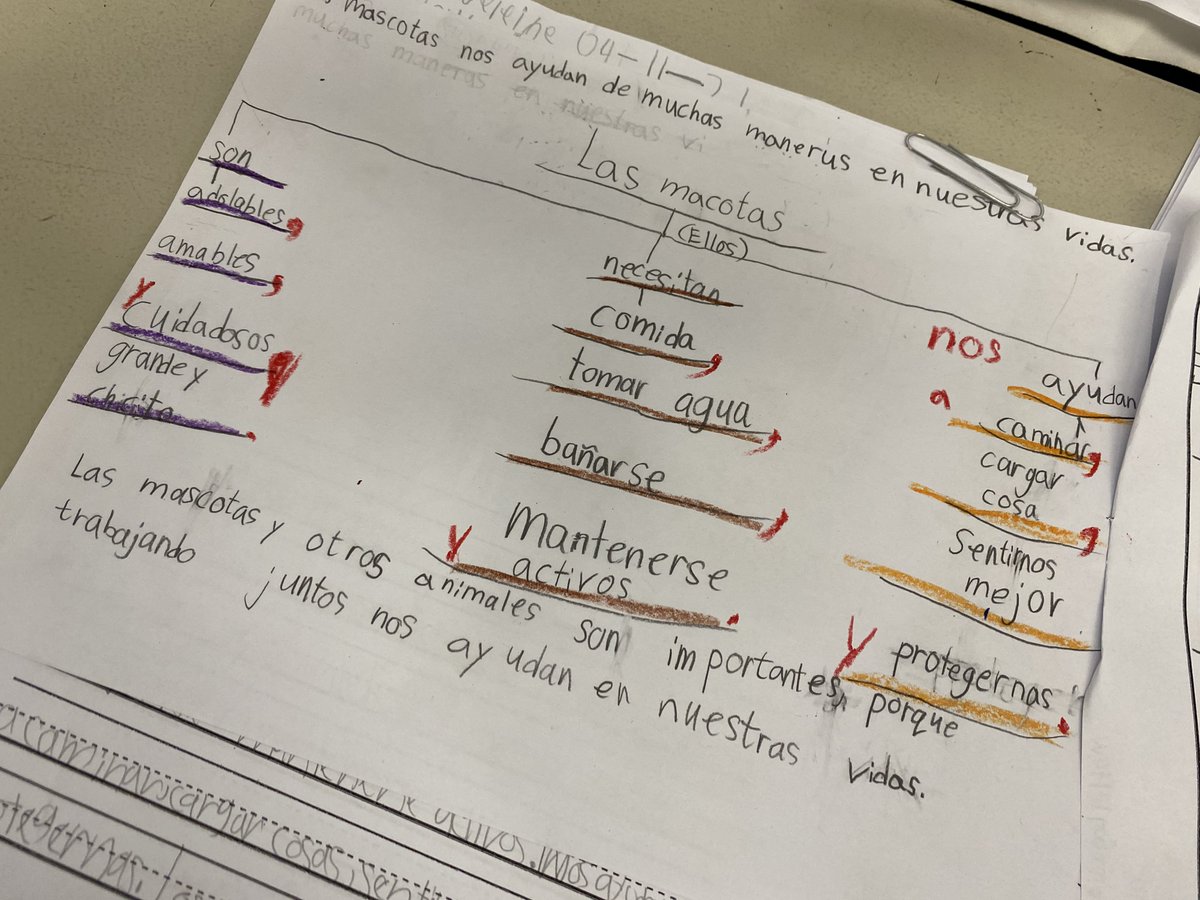 04-11-21
mascotas nos ayudan de muchas manerus en nuestras vidas.
muchas maneras en nuestras vi
Las macotas
(Ellos)
son
adolables,
amables,
y
Cuidadosos,
grande y
chicito.
necesitan
Comida,
tomar agua,
bañarse,
Mantenerse
y activos.
nos
ayudan
a caminar,
cargar
cosa,
Sentirnos
mejor
y protegernas.
Las mascotas y otros animales son importantes, porque
trabajando juntos nos ayudan en nuestras vidas.
a caminar, cargar cosas, senti
activo. Nos ayud